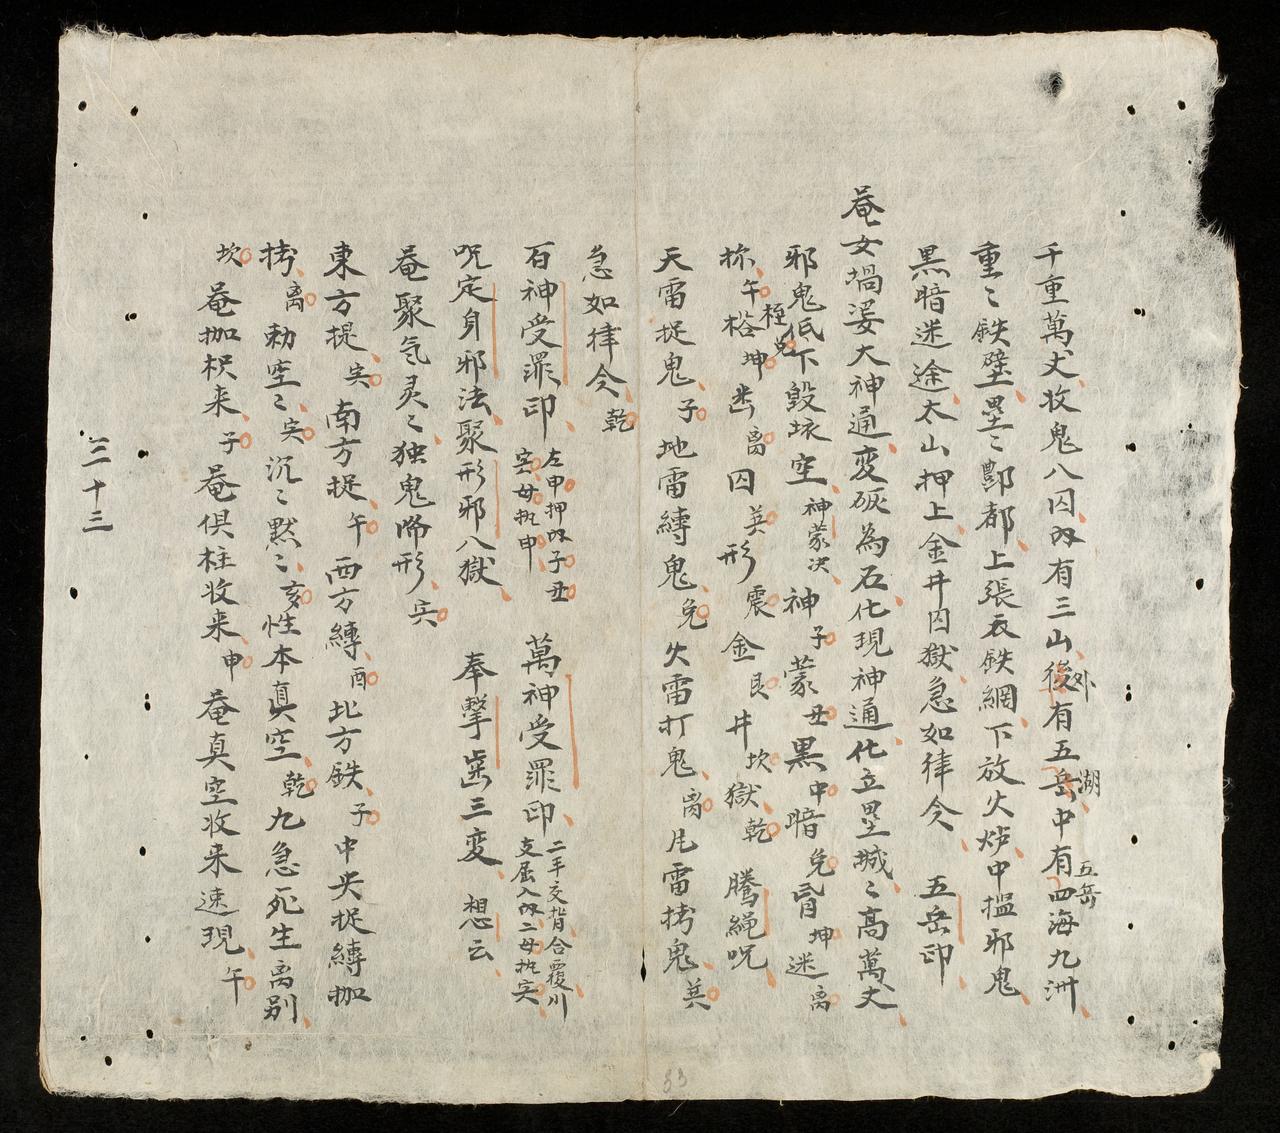 千重萬丈收鬼八囚内有三山後外有五岳湖中有四海五岳九洲
重〻鉄壁壘〻酆都上張天鉄網下放火炉中搵邪鬼
黑暗迷途太山押上金井囚獄急如律令 五岳印
菴女媧娑大神通変砨為石化現神通化立壘城〻高萬丈
邪鬼低下毀坺空神蒙决神子蒙丑黑中暗兌肙坤迷离
枷午桎兌栲坤 离囚英形震金艮井坎獄乾 騰繩呪
天雷捉鬼子地雷縛鬼兌火雷打鬼离 雷拷鬼英
急如律令乾
百神受罪印左申押内子丑寅母执申 萬神受罪印二手交背合覆川支屈入内二母执寅
呪定身邪法聚形邪八獄 奉擊齒三变 想云
菴聚気灵〻独鬼啼形寅
東方捉寅南方捉午西方縛酉北方鉄子中央捉縛枷
拷离勅空〻寅沉〻黙〻亥性本真空乾九急死生离别
坎 菴枷枳来子菴俱柱收来申菴真空收来速現午
三十三
33